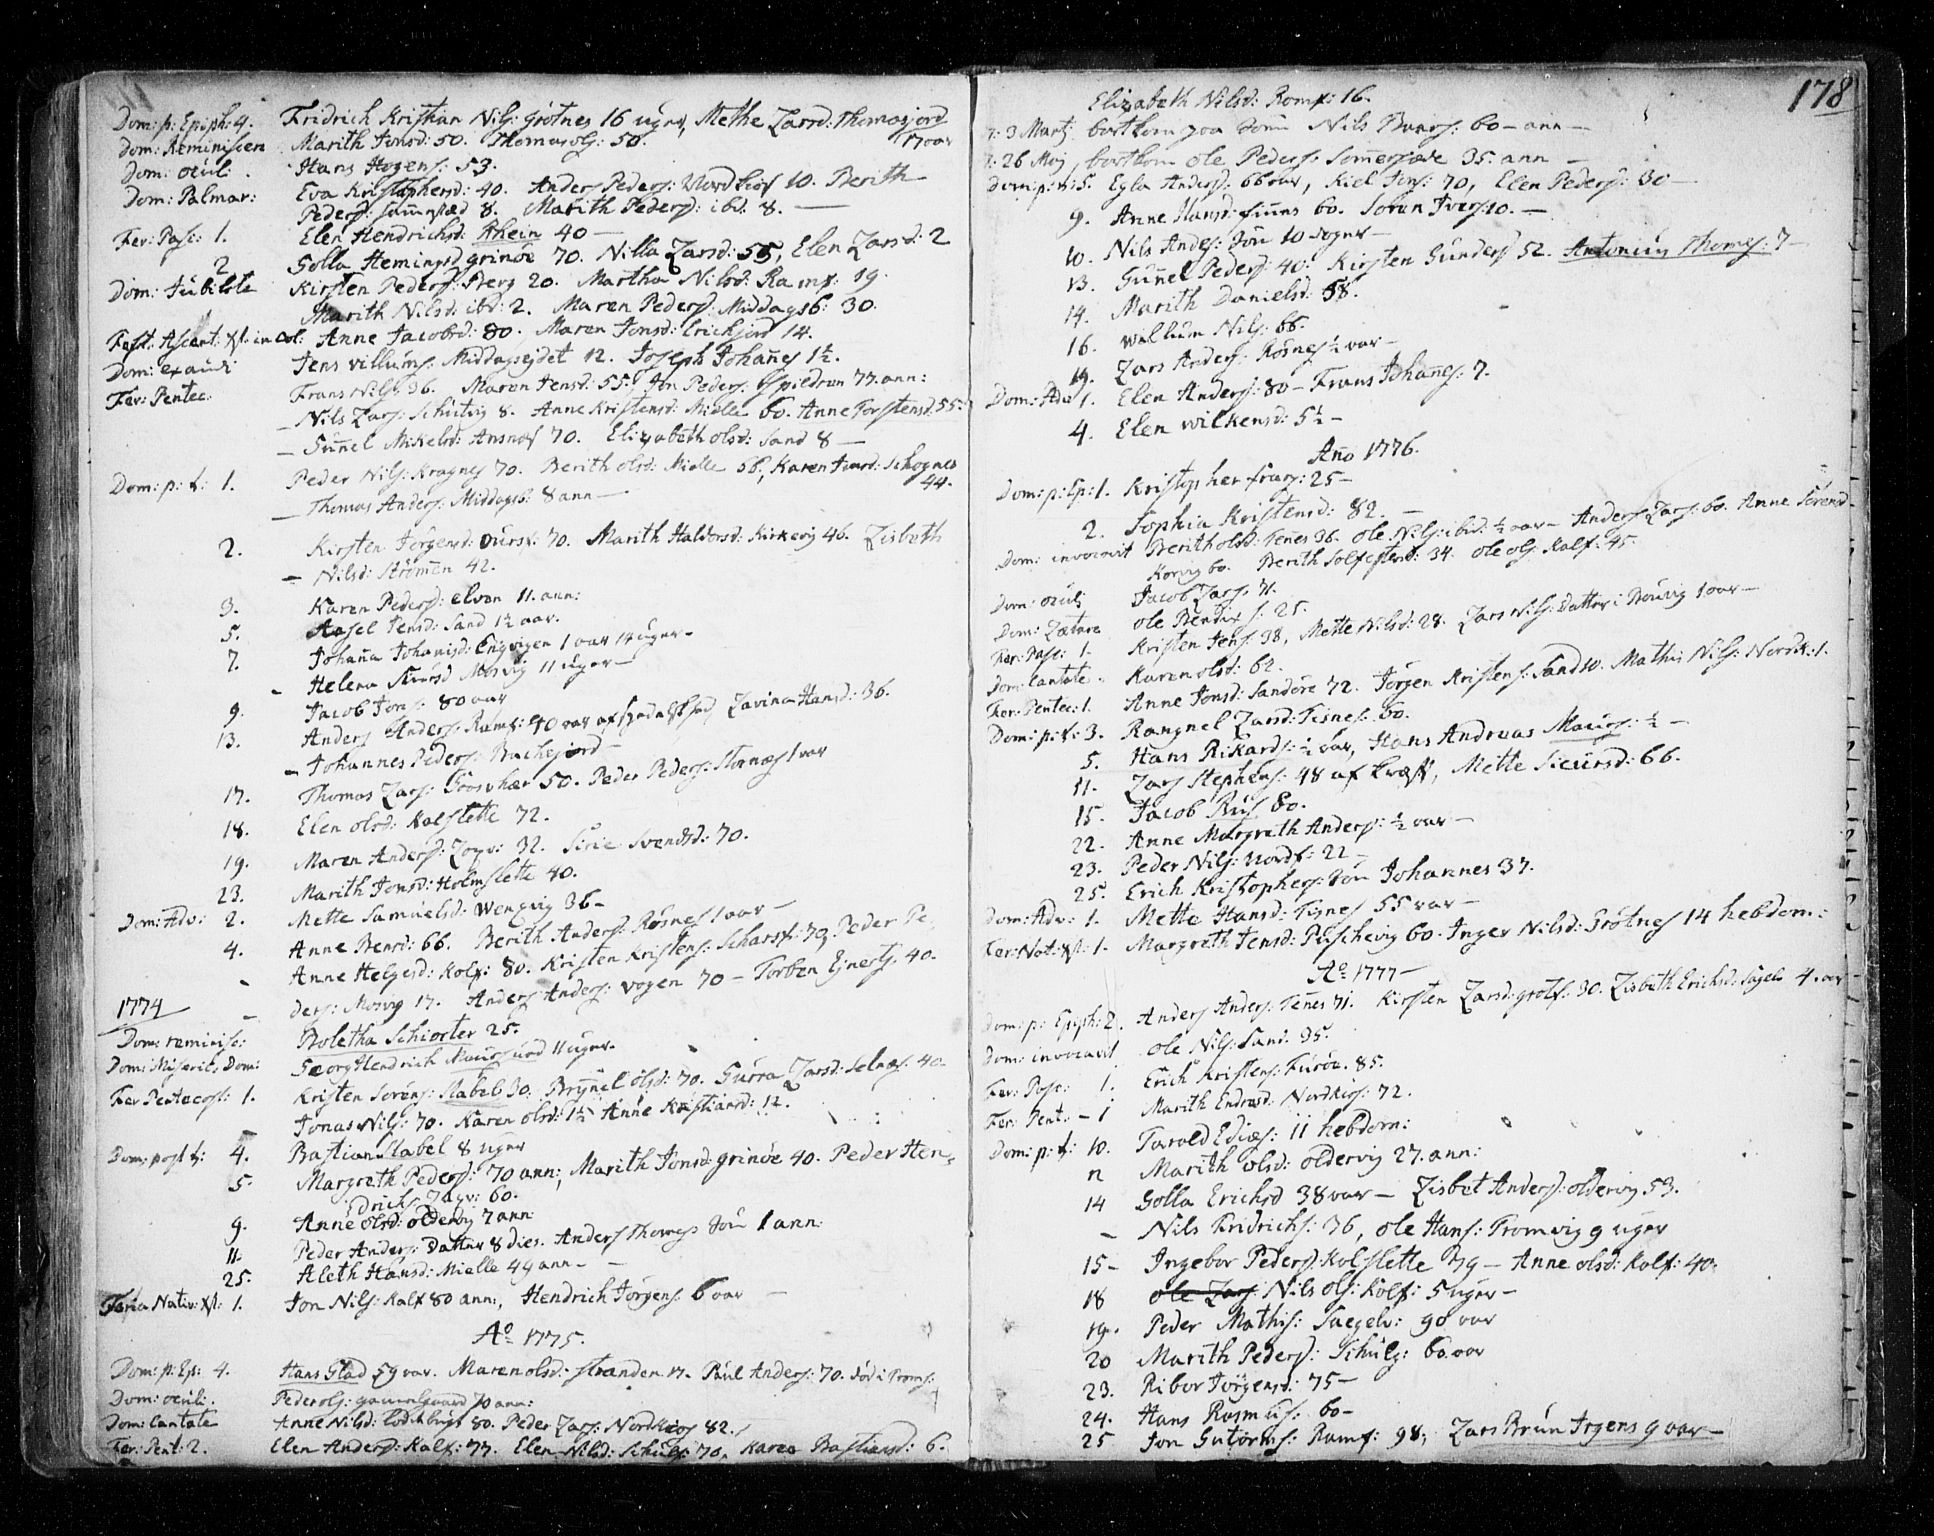 Dom: p: Epiph: 4. Fridrich Kristian Nils: Grøtnes 16 uger, Methe Larsd: Thomasjord
Dom: Reminiscere Marith Jonsd: 50. Thomas ols: 50. 17 aar
Dom: oculi. Hans Hagens: 53.
Dom: Palmar: Eva Kristophersd: 40. Anders Peders: Nordkiøs 10. Berith
Peders: 8. Marith Peders: ibd: 8. —
Fer: Pasc: 1. Elen Hendrichsd: Rhein 40 —
2. Golla Hemingsd grinøe 70. Nilla Larsd: 55, Elen Larsd: 2
Dom: Jubilate Kirsten Peders: Berg 20. Martha Nilsd: Ramf: 19.
Marith Nilsd: ibd: 2. Maren Peders: Middagsb: 30.
Fest: Ascent: Xti in Coel: Anne Jacobsd: 80. Maren Jonsd: Erichfjord 14.
Dom: exaudi Jens Villums: Middagseydet 12. Joseph Johañes 1½.
Fer: Pentec: Frans Nils 36. Maren Jensd: 55. Jon Peders: Spildran 77. ann:
_ Nils Lars: Schulvig 8. Anne Kristensd: Mielle 60. Anne Torstensd. 55.
_ Guñel Mikelsd: Ansnæs 70. Elizabeth olsd: Sand 8 —
Dom: p: t: 1. Peder Nils: Kragnes 70. Berith olsd: Mielle 56, Karen Jonsd: Schognes
_ Thomas Anders: Middagsb: 8 ann — 44.
2. Kirsten Jørgensd: 70. Marith Haldorsd: Kirkevig 46. Lisbeth
_ Nilsd: Strømen 42.
3. Karen Peders: elven 11. ann:
5. Aasel Jensd: Sand 1½ aar.
7. Johaña Johañsd: Engvigen 1 aar 14 uger —
_ Helena Siursd Mosvig 11 uger —
9. Jacob Jons: 80 aar
13. Anders Anders: Ramf: 40 aar af spedalskhed, Lavina Hansd: 36.
_ Johannes Peders: Bachejord —
17. Thomas Lars: 50. Peder Peders: Stornæs 1 aar
18. Elen olsd: Kolslette 72.
19. Maren Anders: 32. Sirie Svendsd: 70.
23. Marith Jonsd: Holmslette 40.
Dom: Adv: 2. Mette Samuelsd: Wengvig 36 —
4. Anne Bensd: 66. Berith Anders: Røsnes 1 aar —
_ Anne Helgesd: Kolf: 80. Kristen Kristens: 79. Peder Pe-
1774 _ ders: Mosvig 17. Anders Anders: vogen 70 — Torben Ejnerts: 40.
Dom: reminisc: Boletha Schiorter 25.
Dom: Miseric: Dom: Georg Hendrich 11 uger.
Fer Pentecost: 1. Kristen Sørens: Stabel 30. Bryñel olsd: 70. Gurra Larsd: Selnæs: 40.
Jonas Nils: 70. Karen olsd: 1½ Anne Kristiansd: 12.
Dom: post t: 4. Bastian Stabel 8 uger
5. Margreth Peders: 70 ann; Marith Jonsd: grinøe 40. Peder Hen-
drichs 60.
9. Anne olsd: oldervig 7 ann:
11. Peder Anders: Datter 8 dies. Anders Thomes: Søn 1 ann:
25. Aleth Hansd: Mielle 49 ann —
Feria Nativ: Xti: 1. Jon Nils: Kalf 80 ann:, Hendrich Jørgens: 6 aar —
Ao 1775.
Dom: p: Ep: 4. Hans Glad 59 aar. Maren olsd: stranden 17. Paul Anders: 70. død i Troms:
Dom: oculi. Peder ols: gammelgaard 70 ann:
Dom: Cantate Anne Nilsd: 80. Peder Lars: Nordkiøs 82.
Fer: Pent: 2. Elen Anders: Kalf: 77. Elen Nilsd: Schulf: 70. Karen Bastiansd: 6.
178
Elizabeth Nilsd: Ramf: 16.
d: 3 Martj bortkom paa Søen Nils 60 — ann —
d: 26 Maj, bortkom ole Peders: Somersæt 35. ann —
Dom: p: t: 5. Egla Anders: 66 aar, Kiel Jens: 70, Elen Peders: 30 —
9. Anne Hansd: fiñnes 60. Søren Ivers: 10. —
10. Nils Anders: Søn 10 uger —
13. Guñel Peders: 40. Kirsten Gunders 52. Antonius Thomes: 7 —
14. Marith Danielsd: 58.
16. Willum Nils: 66.
19. Lars Anders: Røsnes ½ aar —
Dom: Adv 1. Elen Anders: 80 — Frans Johañes: 7.
4. Elen wilkensd: 5½ —
Año 1776.
Dom: p: Ep: 1. Kristopher frans: 25 —
2. Sophia Kristensd: 82. —
Dom: invocavit Berith olsd: Tenes 36. ole Nils: ibid: ½ aar — Anders Lars: 60. Anne Sørensd.
Korvig 60. Berith Solfestersd: 34. ole ols: Kalf: 45.
Dom: oculi Jacob Lars: 71.
Dom: Lætare ole Bendix: 25.
Fer: Pasc: 1. Kristen Jens: 38, Mette Nilsd: 28. Lars Nils: Datter i 1 aar —
Dom: Cantate Karen olsd: 62.
Fer: Pentec: 1. Anne Jonsd: Sandøre 72. Jørgen Kristens: Sand 10. Mathis Nils: Nordk: 1.
Dom: p: t: 3. Rangnel Larsd: Tisnes 60.
5. Hans Rikards: ½ aar, Hans Andreas Maurs: ½ —
11. Lars Stephens: 48 af kræft, Mette Sieursd: 66.
15. Jacob Rus 80.
22. Anne Margreth Anders: ½ aar —
23. Peder Nils: Nordf: 22 —
25. Erich Kristophers: Søn Johannes 37.
Dom: Adv: 1. Mette Hansd: Tisnes 55 aar —
Fer: Nat: Xti: 1. Margreth Jensd: 60. Inger Nilsd: Grøtnes 14 hebdom:
Ao 1777 —
Dom: p: Epiph: 2. Anders Anders: Tenes 71. Kirsten Larsd: grøtf: 30. Lisbeth Erichsd: 4. aar —
Dom: invocavit ole Nils: Sand: 35.
Fer: Pasc: 1. Erich Kristens: Furøe. 85.
Fer: Pent: — 1 Marith Endresd: Nordkiøs: 72.
Dom: p: t: 10. Tarald Edies: 11 hebdom:
11 Marith olsd: oldervig 27. ann:
14 Golla Erichsd 38 aar — Lisbet Anders: oldervig 53.
_ Nils Fridrichs: 76, ole Hans: Tromvig 9 uger
15 — Ingebor Peders: Kolslette 79 — Anne olsd: Kalf: 40.
18 ole Lars Nils ols: Kolf: 5 uger —
19. Peder Mathis: 90 aar
20 Marith Peders: Schulg: 60. aar
23. Ribor Jørgensd: 75 —
24. Hans Rasmus: 60 —
25 Jon Gutorms: Ramf: 98; Lars Brun Irgens 9 aar —